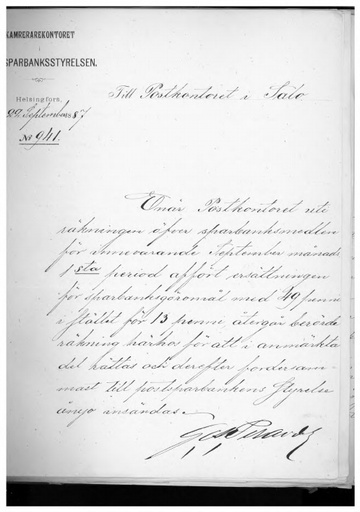 KAMRERAREKONTORET
I
SPARBANKSSTYRELSEN.
Helsingfors,
29 September 1887
No 941.
Till Postkontoret i Salo
Enär Postkontoret uti
räkningen öfver sparbanksmedlen
för innevarande September månads
1sta period affört ersättningen
för sparbanksgöromål med 49 penni
i stället för 13 penni, återgår berörde
räkning härhos för att i anmärkta
del rättas och derefter fordersam-
mast till postsparbankens Styrelse
ånyo insändas.